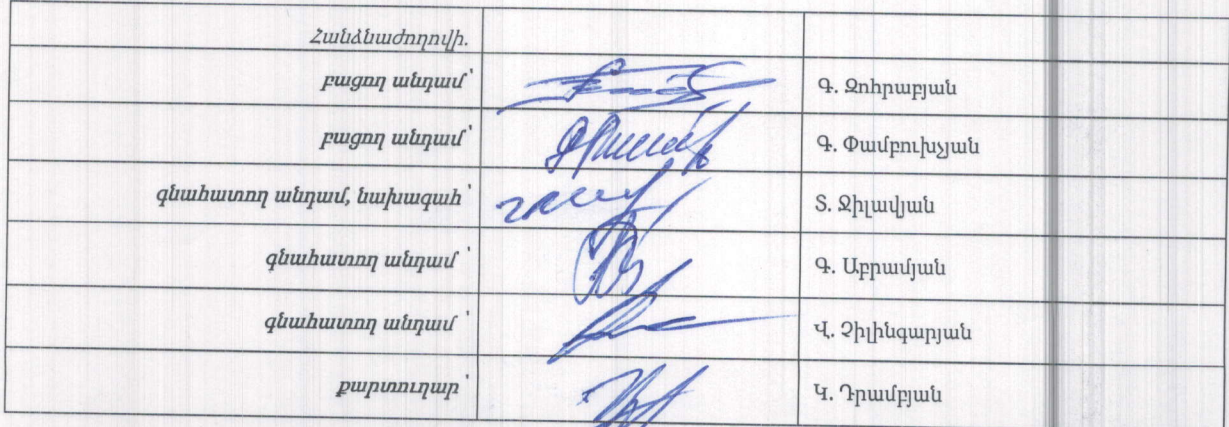 Հանձնաժողովի.
բացող անդամ՝ Գ. Զոհրաբյան
բացող անդամ՝ Գ. Փամբուխչյան
գնահատող անդամ, նախագահ՝ Տ. Ջիլավյան
գնահատող անդամ՝ Գ. Աբրամյան
գնահատող անդամ՝ Վ. Չիլինգարյան
քարտուղար՝ Կ. Դրամբյան